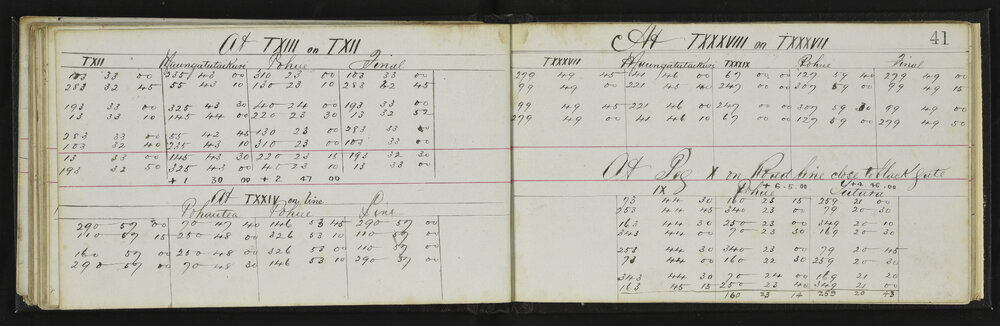 At TXIII on TXII
TXII Haungatutaikuri Pohue Final
103 33 00 235 43 00 310 23 00 103 33 00
283 32 45 55 43 10 130 23 10 283 32 45
193 33 00 325 43 30 40 24 00 193 33 00
13 33 10 145 44 00 220 23 30 13 32 52
283 33 00 55 42 45 130 23 00 283 33 00
103 32 40 235 43 10 310 23 00 103 33 00
13 33 00 145 43 30 220 23 15 193 32 30
193 32 50 325 43 00 40 23 10 13 33 00
+ 1 30 00 + 2 47 00
At TXXIV on line
Pohuitea Pohue Line
290 57 30 70 47 40 146 53 45 290 57 00
110 57 15 250 48 00 326 53 10 110 57 00
160 57 00 250 48 00 326 53 00 110 57 00
290 57 00 70 48 30 146 53 10 290 57 00
41
At TXXXVIII on TXXXVII
TXXXVII Haungatutaikuri TXXXIX Pohue Final
279 49 45 41 46 00 67 00 00 127 59 40 279 49 00
99 49 00 221 45 40 247 00 00 307 59 00 99 49 15
99 49 45 221 46 00 247 00 00 307 59 30 99 49 00
279 49 00 41 46 10 67 00 00 127 59 00 279 49 50
At Peg X on Road line close to black gate
+ 6.5.00 + 4.46.00
IX Pohue
73 44 30 160 23 15 259 21 00
253 44 45 340 23 00 79 20 30
163 44 30 250 23 00 349 20 10
343 44 00 70 23 30 169 20 30
253 44 30 340 23 00 79 20 45
73 44 00 160 22 30 259 20 30
343 44 30 70 24 00 169 21 20
163 45 15 250 23 40 349 21 00
160 23 14 259 20 43